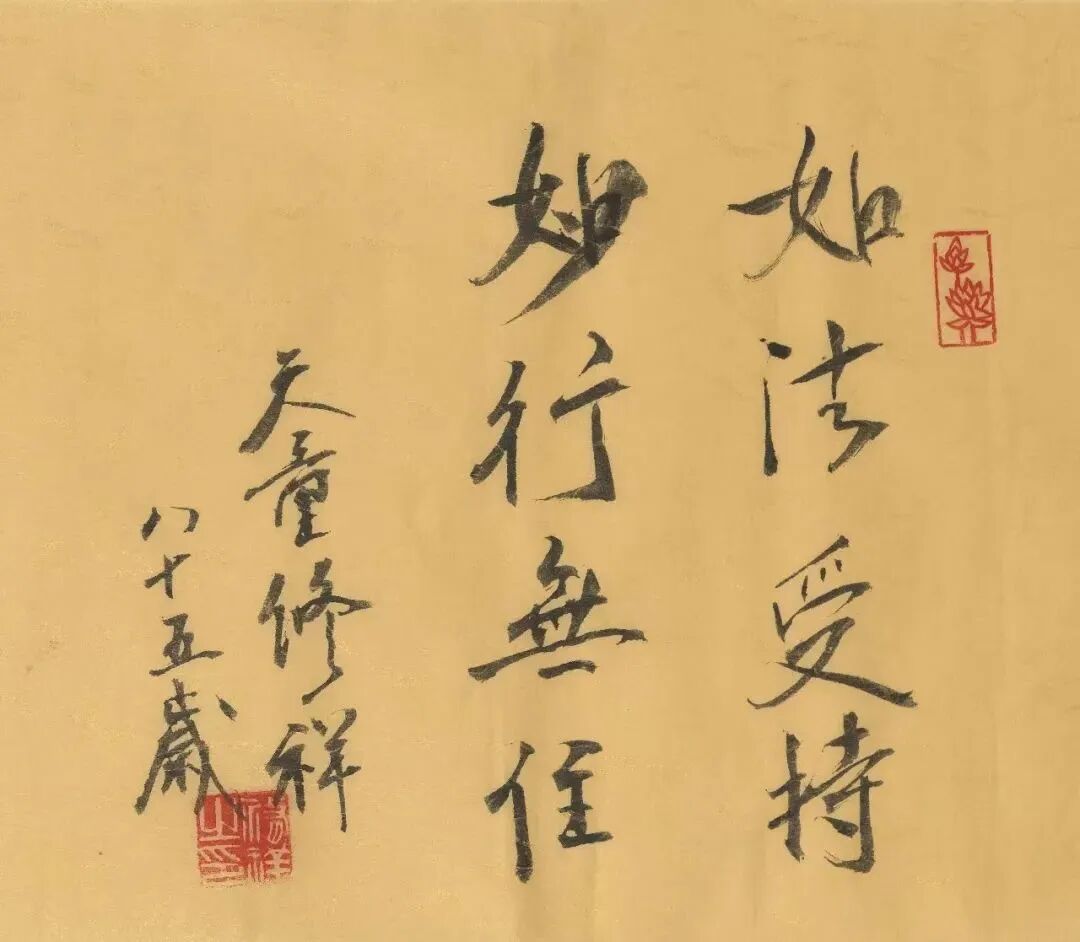 如法受持
妙行無住
天童修祥
八十五歲
修祥之印